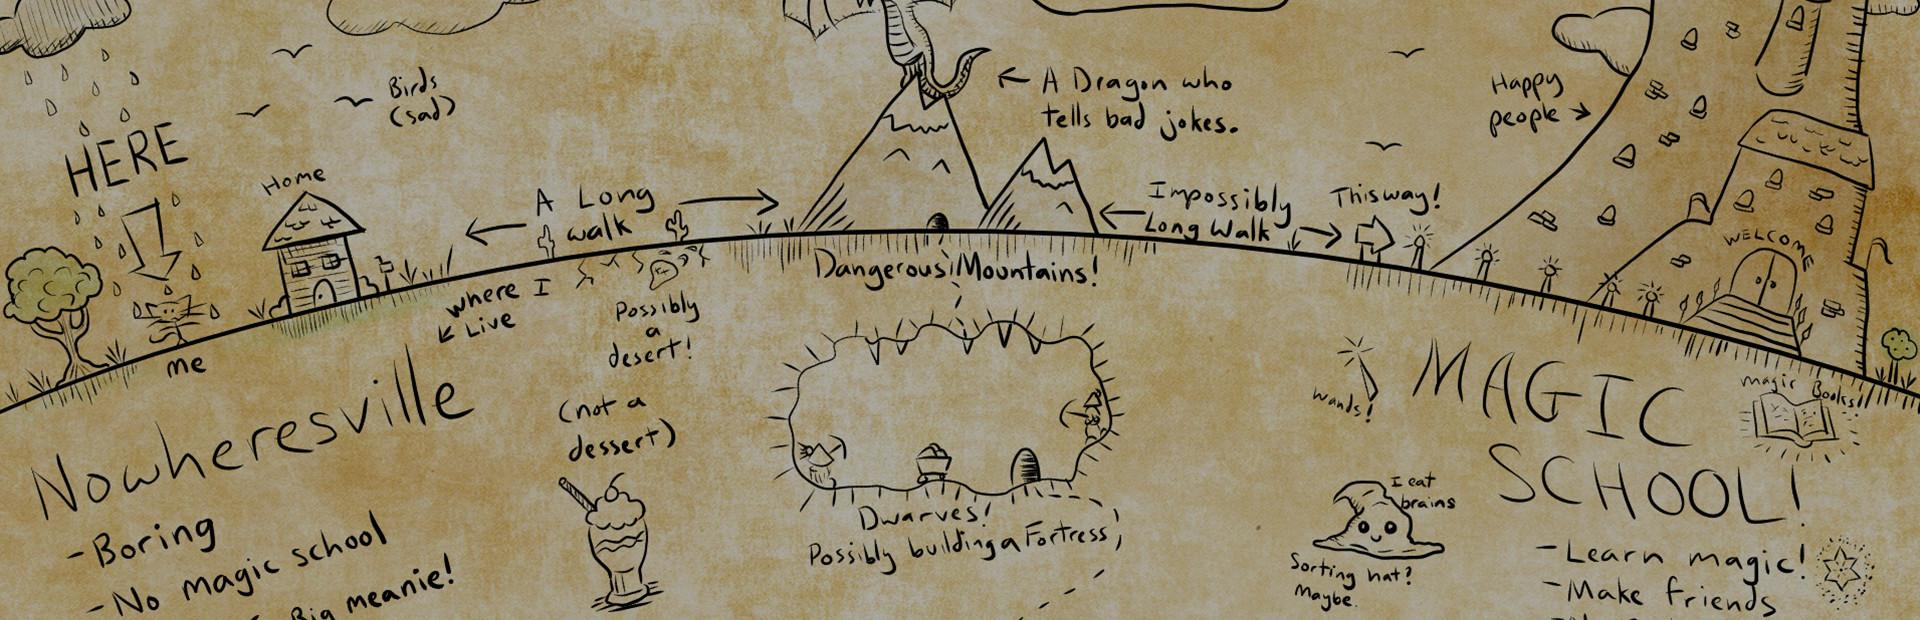 HERE
me
Home
Birds
(sad)
A Long
walk
where I
Live
Possibly
a
desert!
(not a
dessert)
Nowheresville
-Boring
-No magic school
Big meanie!
A Dragon who
tells bad jokes.
Dangerous Mountains!
Dwarves!
Possibly building a Fortress
Impossibly
Long Walk
This way!
Happy
people
WELCOME
wands!
MAGIC
SCHOOL!
magic Books!
I eat
brains
Sorting hat?
Maybe.
-Learn magic!
-Make friends